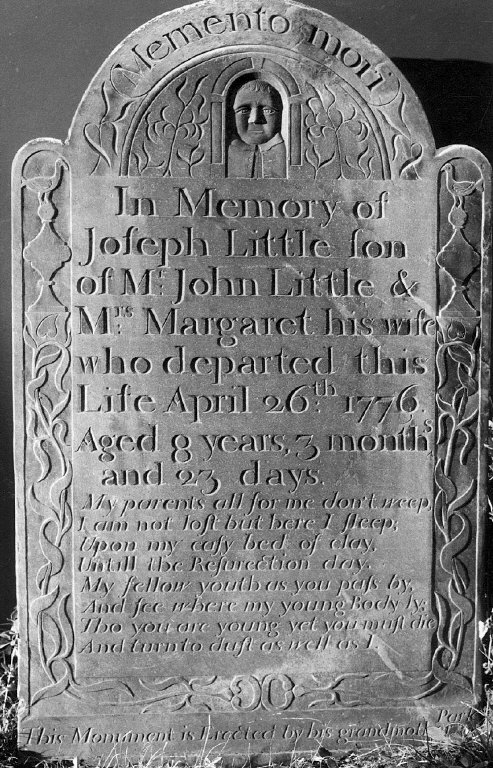 Memento mori
In Memory of
Joſeph Little ſon
of Mr. John Little &
Mrs. Margaret his wife
who departed this
Life April 26th. 1776.
Aged 8 years, 3 months
and 23 days.
My parents all for me don't weep,
I am not loſt but here I ſleep,
Upon my eaſy bed of clay,
Untill the Reſurection day.
My fellow youth as you paſs by,
And ſee where my young Body ly;
Tho you are young yet you muſt die
And turn to duſt as well as I
This Monument is Erected by his grand